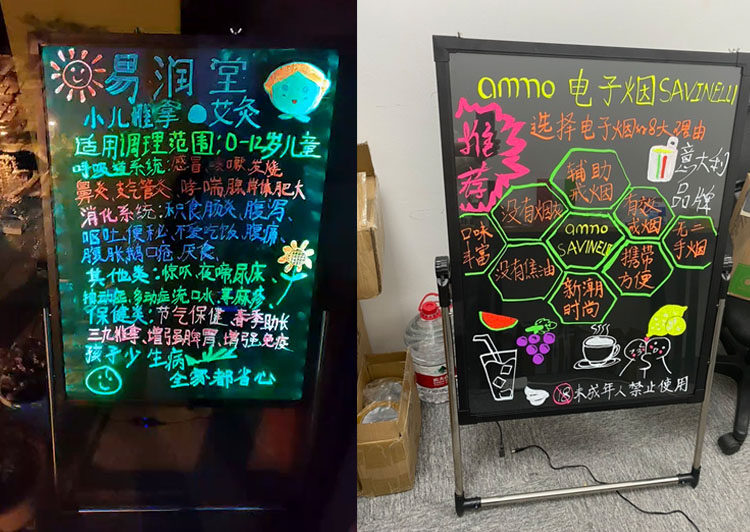 易润堂
小儿推拿 艾灸
适用调理范围:0-12岁儿童
呼吸道系统:感冒、咳嗽、发烧
鼻炎、支气管炎、哮喘、腺样体肥大
消化系统:积食、肠炎、腹泻、
呕吐、便秘、不爱吃饭、腹痛、
腹胀、鹅口疮、厌食、
其他类:惊吓、夜啼、尿床、
抽动症、多动症、流口水、荨麻疹、
保健类:节气保健、春季助长
三九推拿、增强脾胃、增强免疫
孩子少生病
全家都省心
ammo 电子烟 SAVINELLI
推荐
选择电子烟的8大理由
意大利
品牌
辅助
戒烟
没有烟灰
有效
戒烟
口味
丰富
ammo
SAVINELLI
无二
手烟
没有焦油
携带
方便
新潮
时尚
18 未成年人禁止使用